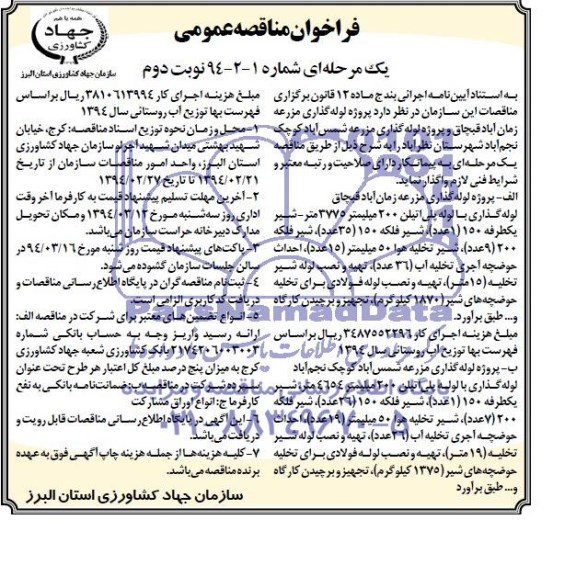 فراخوان مناقصه عمومی
همه با هم
جهاد
کشاورزی
سازمان جهاد کشاورزی استان البرز
یک مرحله‌ای شماره ۱-۲-۹۴ نوبت دوم
به استناد آیین نامه اجرائی بند ج ماده ۱۲ قانون برگزاری
مناقصات این سازمان در نظر دارد پروژه لوله گذاری مزرعه
زمان آباد قبچاق و پروژه لوله گذاری مزرعه شمس آباد کوچک
نجم‌آباد شهرستان نظرآباد را به شرح ذیل از طریق مناقصه
یک مرحله‌ای به پیمانکار دارای صلاحیت و رتبه معتبر و
شرایط فنی لازم واگذار نماید.
الف- پروژه لوله گذاری مزرعه زمان آباد قبچاق
لوله گذاری با لوله پلی اتیلن ۲۰۰ میلیمتر ۳۷۷۵ متر-شیر
یکطرفه ۱۵۰ (۱عدد)، شیر فلکه ۱۵۰ (۳۵عدد)، شیر فلکه
۲۰۰ (۹عدد)، شیر تخلیه هوا ۵۰ میلیمتر (۱۵عدد)، احداث
حوضچه آجری تخلیه آب (۳۶ عدد)، تهیه و نصب لوله شیر
تخلیه (۱۵متر)، تهیه و نصب لوله فولادی برای تخلیه
حوضچه‌های شیر (۱۸۷۰ کیلوگرم)، تجهیز و برچیدن کارگاه
و... طبق برآورد.
مبلغ هزینه اجرای کار ۳۴۸۷۵۵۲۲۹۶ ریال براساس
فهرست بها توزیع آب روستایی سال ۱۳۹۴
ب- پروژه لوله گذاری مزرعه شمس آباد کوچک نجم‌آباد
لوله گذاری با لوله پلی اتیلن ۲۰۰ میلیمتر ۴۶۵۴ متر-شیر
یکطرفه ۱۵۰ (۱عدد)، شیر فلکه ۱۵۰ (۲۶عدد)، شیر فلکه
۲۰۰ (۷عدد)، شیر تخلیه هوا ۵۰ میلیمتر (۱۹عدد)، احداث
حوضچه آجری تخلیه آب (۲۹عدد)، تهیه و نصب لوله شیر
تخلیه (۱۹متر)، تهیه و نصب لوله فولادی برای تخلیه
حوضچه‌های شیر (۱۳۷۵ کیلوگرم)، تجهیز و برچیدن کارگاه
و... طبق برآورد
مبلغ هزینه اجرای کار ۳۸۱۰۶۱۳۹۹۴ ریال براساس
فهرست بها توزیع آب روستایی سال ۱۳۹۴
۱- محل و زمان نحوه توزیع اسناد مناقصه: کرج، خیابان
شهید بهشتی میدان شهید سازمان جهاد کشاورزی
استان البرز، واحد امور مناقصات سازمان از تاریخ
۱۳۹۴/۰۲/۲۱ تا تاریخ ۱۳۹۴/۰۲/۲۷
۲- آخرین مهلت تسلیم پیشنهاد قیمت به کارفرما آخر وقت
اداری روز سه‌شنبه مورخ ۱۳۹۴/۰۳/۱۲ و مکان تحویل
مدارک دبیرخانه حراست سازمان می‌باشد.
۳- پاکت‌های پیشنهاد قیمت روز شنبه مورخ ۹۴/۰۳/۱۶ در
سالن جلسات سازمان گشوده می‌شود.
۴- ثبت نام مناقصه گران در پایگاه اطلاع رسانی مناقصات و
دریافت کد کاربری الزامی است.
۵- انواع تضمین‌های معتبر برای شرکت در مناقصه الف:
ارائه رسید واریز وجه به حساب بانکی شماره
۲۱۷۴۲۰۶۰۰۳۰۰۳ بانک کشاورزی شعبه جهاد کشاورزی
کرج به میزان پنج درصد مبلغ کل اعتبار هر طرح تحت عنوان
سپرده شرکت در مناقصه ب: ضمانت‌نامه بانکی به نفع
کارفرما ج: انواع اوراق مشارکت
۶- این آگهی در پایگاه اطلاع رسانی مناقصات قابل رویت و
دریافت می‌باشد.
۷- کلیه هزینه‌ها از جمله هزینه چاپ آگهی فوق به عهده
برنده مناقصه می‌باشد.
سازمان جهاد کشاورزی استان البرز
ParsNamadData
۰۲۱-۸۸۳۴۹۶۷۰-۵